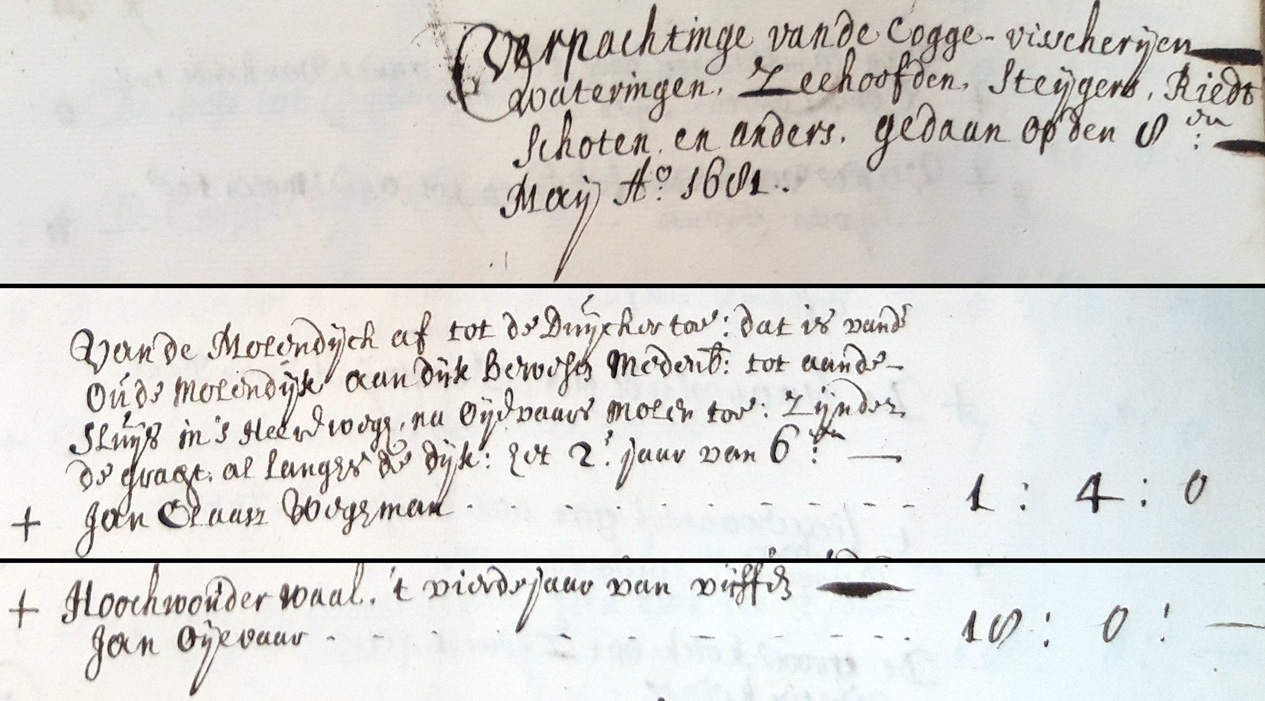 Verpachtinge vande Cogge-visscherijen
Wateringen, Zeehoofden, Steijgers, Riedt
schoten, en anders. gedaan op den 8en:
Maij Ao. 1681..
Van de Molendijck af tot de Duijcker toe: dat is vande
Oude Molendijk aan dijk Bewesten Medenb: tot aande
Sluijs in's Heerdwegs, na Oijevaars molen toe: Zijnde
de gragt, al langes de dijk: het 2e. jaar van 6en:
+ Jan Claasz Wegsman 1 : 4 : 0
+ Hoochwouder waal, 't vierde jaar van vijffz
Jan Oijevaar 18 : 0 :